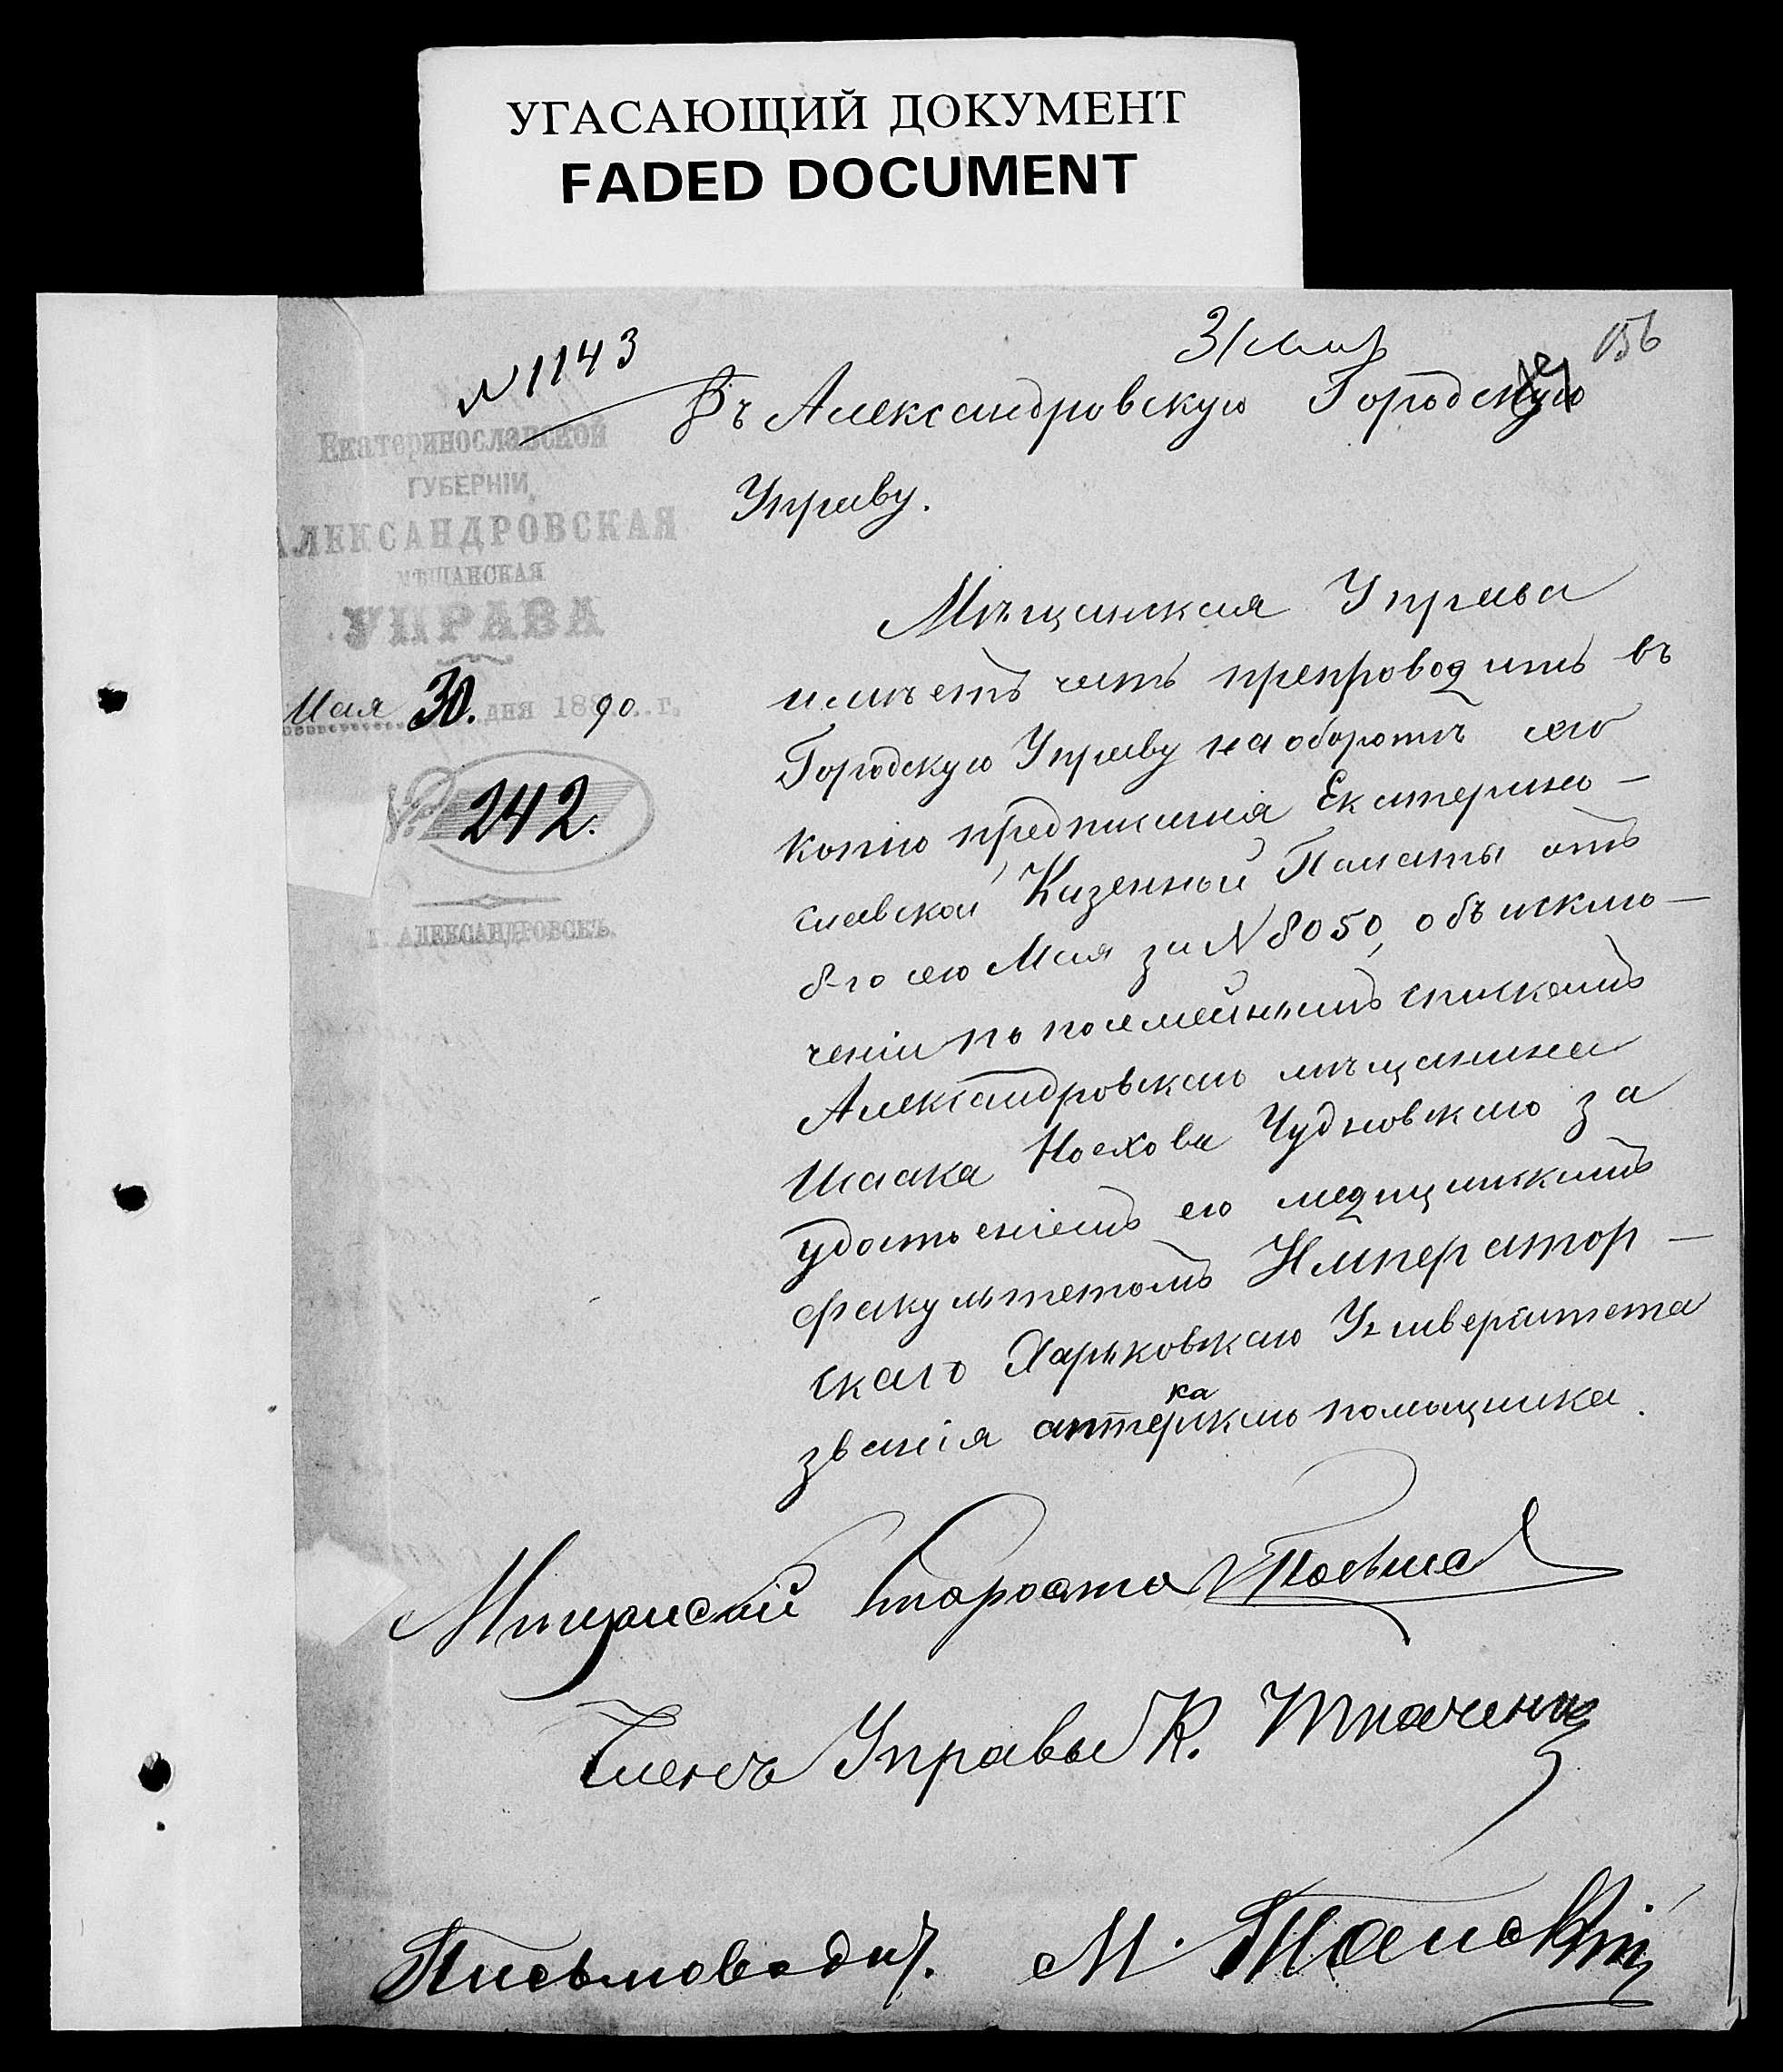 УГАСАЮЩИЙ ДОКУМЕНТ
FADED DOCUMENT
31 мая
156
№ 1143
Екатеринославской
ГУБЕРНІИ,
АЛЕКСАНДРОВСКАЯ
МѢЩАНСКАЯ
УПРАВА
Мая 30. дня 1890 г.
№ 242.
Г. АЛЕКСАНДРОВСКЪ.
Въ Александровскую Городскую
Управу.
Мѣщанская Управа
имѣетъ честь препроводить въ
Городскую Управу на оборотѣ сего
копію предписанія Екатерино-
славской Казенной Палаты отъ
8-го сего Мая за № 8050, объ исклю-
ченіи по посемейнымъ спискамъ
Александровскаго мѣщанина
Исаака Ноехова Чудновскаго за
удостоеніемъ его медицинскимъ
факультетомъ Император-
скаго Харьковскаго Университета
званія аптекарскаго помощника.
Мѣщанскій Староста
Членъ Управы К. Ткаченко
Письмоводит. М.